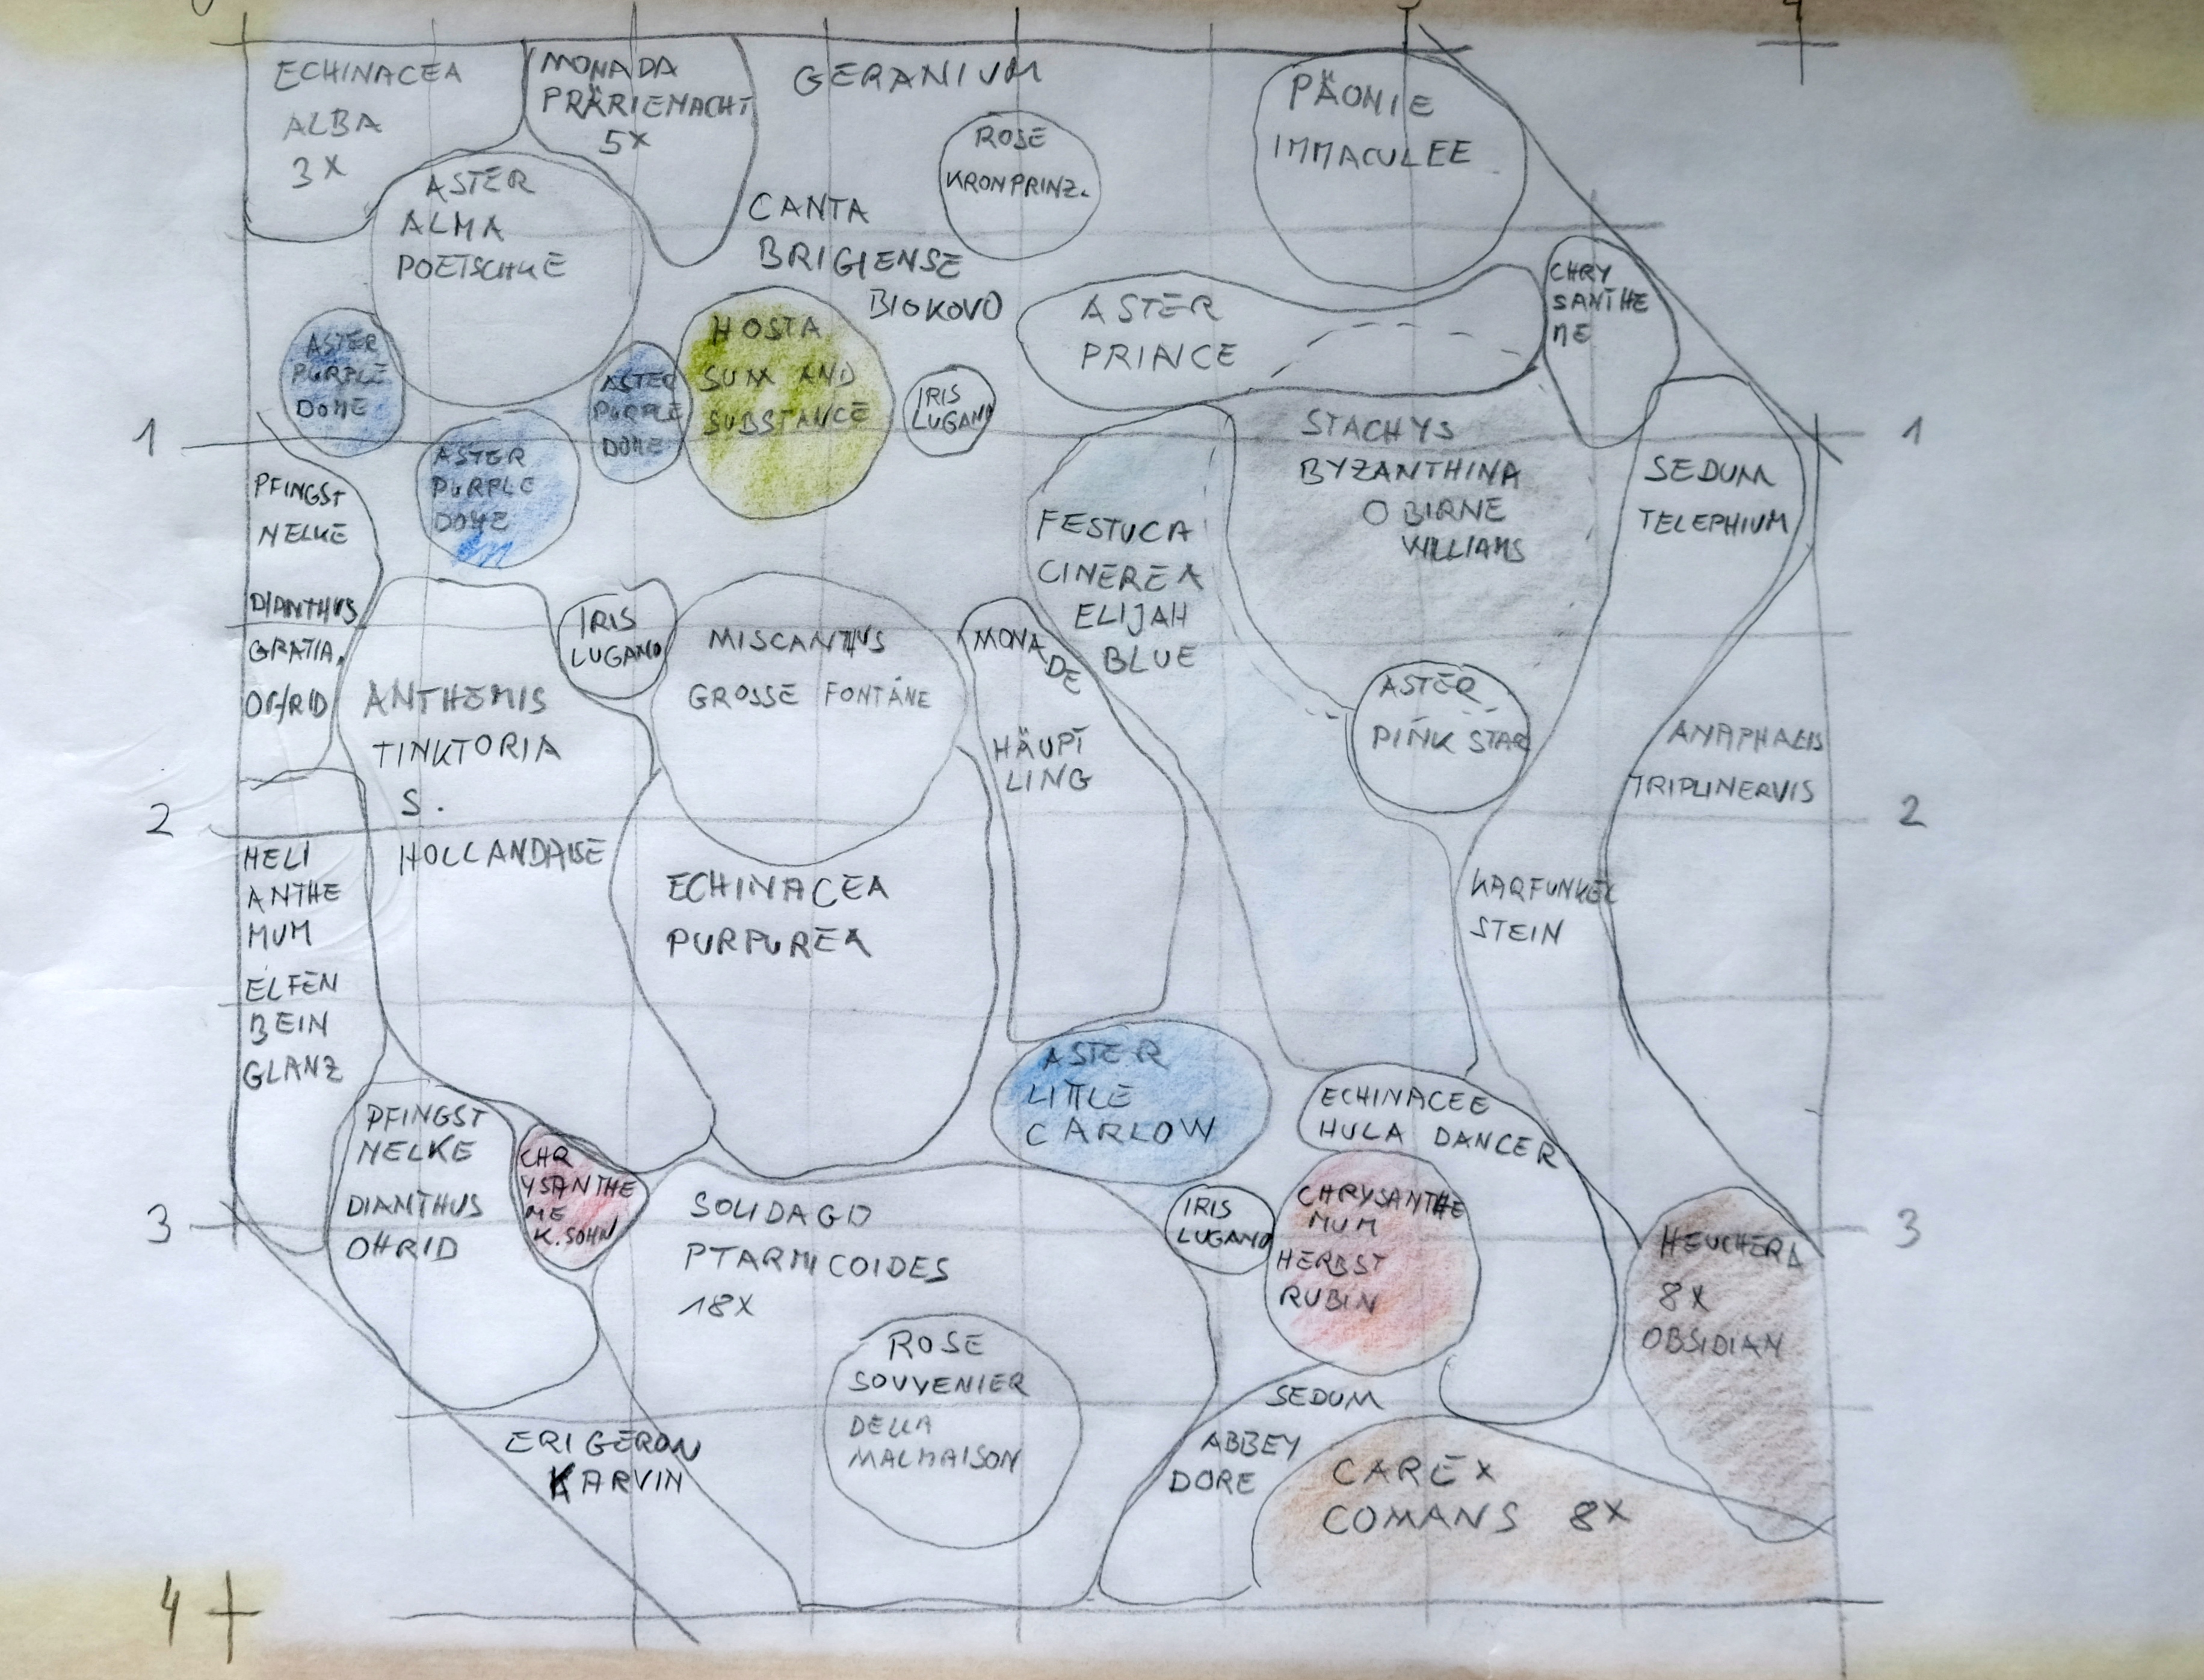 ECHINACEA
ALBA
3X
MONADA
PRÄRIENACHT
5X
GERANIUM
CANTA
BRIGIENSE
BIOKOVO
ROSE
KRONPRINZ.
PÄONIE
IMMACULEE
ASTER
ALMA
POETSCHKE
ASTER
PURPLE
DOME
ASTER
PURPLE
DOME
ASTER
PURPLE
DOME
HOSTA
SUM AND
SUBSTANCE
IRIS
LUGANO
ASTER
PRINCE
CHRY
SANTHE
ME
1
1
PFINGST
NELKE
DIANTHUS
GRATIA.
OHRID
FESTUCA
CINEREA
ELIJAH
BLUE
STACHYS
BYZANTHINA
O BIRNE
WILLIAMS
SEDUM
TELEPHIUM
KARFUNKEL
STEIN
ANTHEMIS
TINKTORIA
S.
HOLLANDAISE
IRIS
LUGANO
MISCANTHUS
GROSSE FONTÄNE
MONA
DE
HÄUPT
LING
ASTER
PINK STAR
ANAPHALIS
TRIPLINERVIS
2
2
HELI
ANTHE
MUM
ELFEN
BEIN
GLANZ
ECHINACEA
PURPUREA
ASTER
LITTLE
CARLOW
ECHINACEE
HULA DANCER
PFINGST
NELKE
DIANTHUS
OHRID
CHR
YSANTHE
ME
K. SOHN
SOLIDAGO
PTARMICOIDES
18X
IRIS
LUGANO
CHRYSANTHE
MUM
HERBST
RUBIN
3
3
HEUCHERA
8X
OBSIDIAN
ROSE
SOUVENIER
DELLA
MALMAISON
ERIGERON
KARVIN
SEDUM
ABBEY
DORE
CAREX
COMANS 8X
4